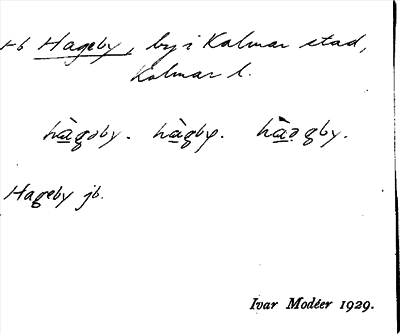 Hageby, by i Kalmar stad,
Kalmar l.
hàgəby. hàgby. hàəgby.
Hageby jb.
Ivar Modéer 1929.